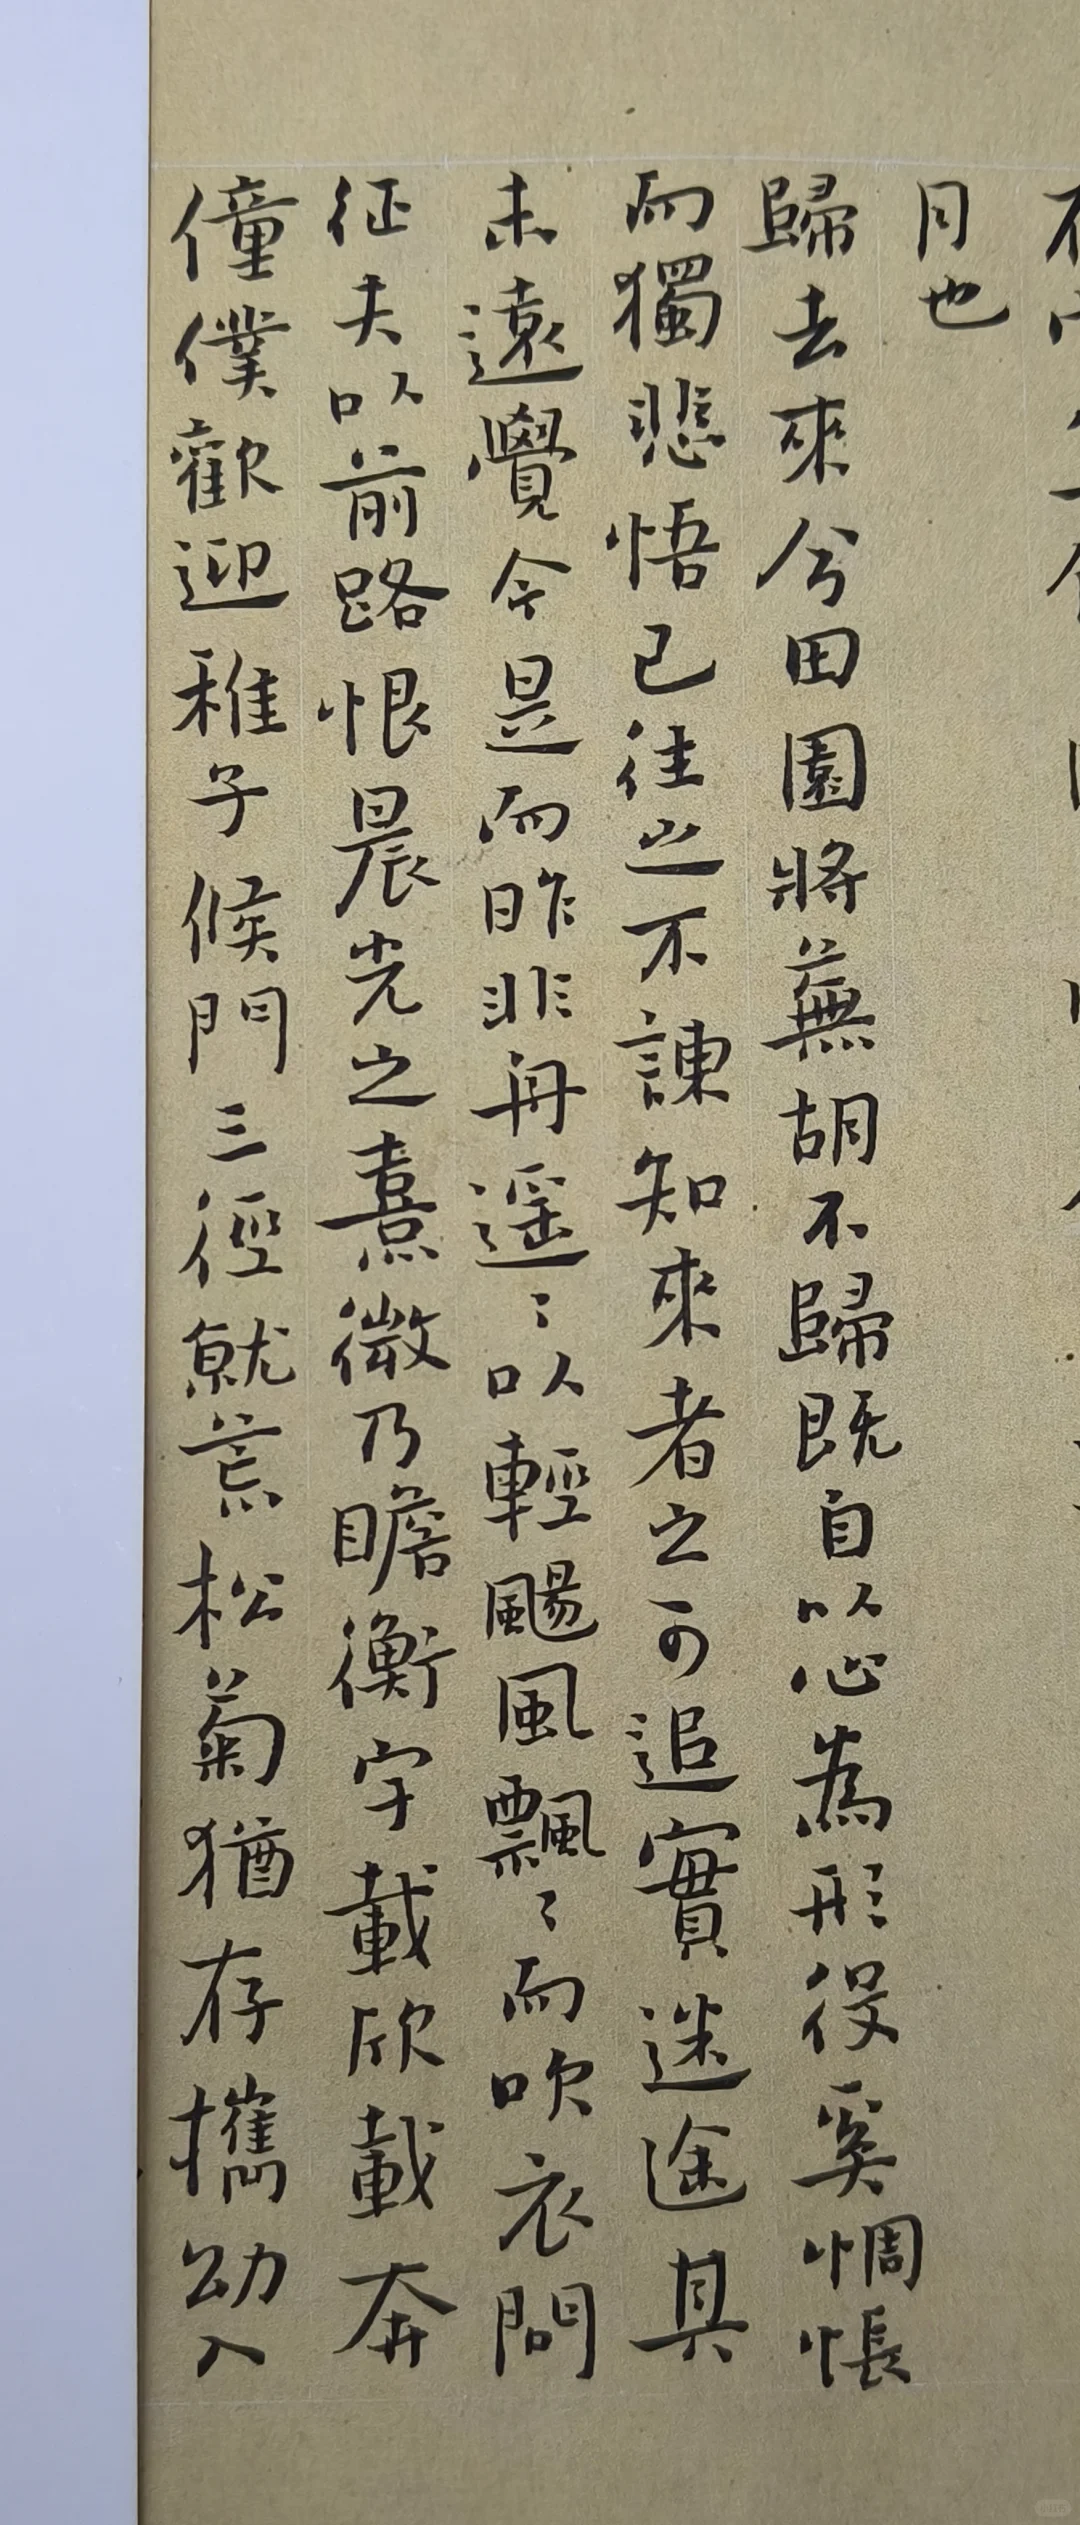 月也
歸去來兮田園將蕪胡不歸既自以心為形役奚惆悵
而獨悲悟已往之不諫知來者之可追實迷途其
未遠覺今是而昨非舟遥〻以輕颺風飄〻而吹衣問
征夫以前路恨晨光之熹微乃瞻衡宇載欣載奔
僮僕歡迎稚子候門三徑就荒松菊猶存攜幼入